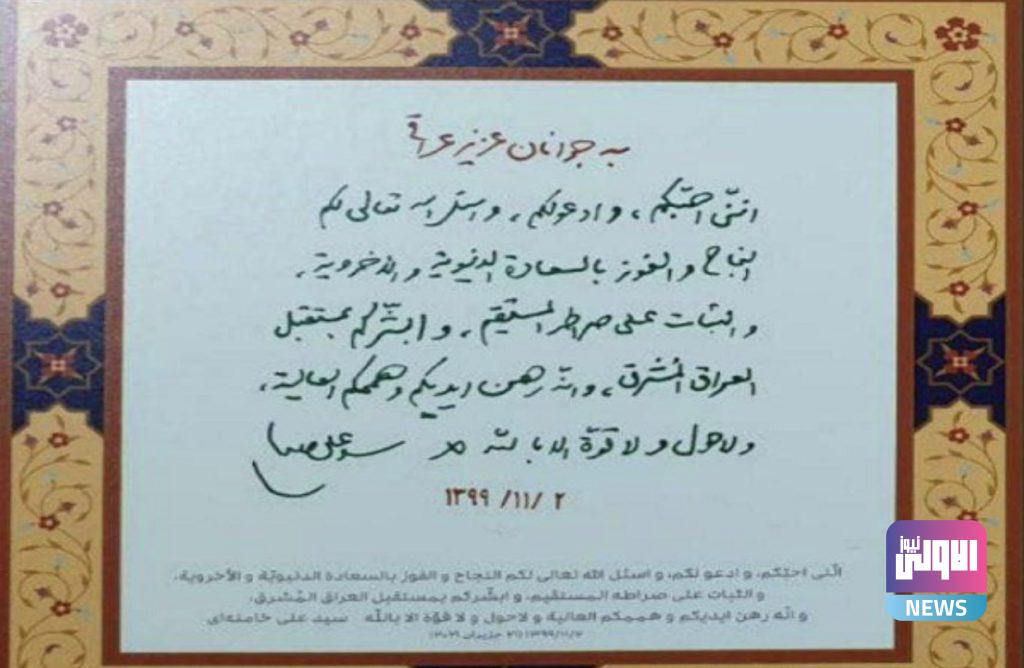 به جوانان عزیز عراق
اننی احبّکم، و ادعو لکم، و اسئل الله تعالی لکم
النجاح و الفوز بالسعادة الدنیویة و الاخرویة،
و الثبات علی صراطه المستقیم، و ابشّرکم بمستقبل
العراق المُشرق، و انّه رهن ایدیکم و هممکم العالیة،
ولاحول و لا قوّة الا بالله سید علی خامنه‌ای
۱۳۹۹/۱۱/۲
انّنی احبّکم، و ادعو لکم، و اسئل الله تعالی لکم النجاح و الفوز بالسعادة الدنیویّة و الأخرویة،
و الثبات علی صراطه المستقیم، و ابشّرکم بمستقبل العراق المُشرق،
و انّه رهن ایدیکم و هممکم العالیة و لاحول و لا قوّة الا باللّه سید علی خامنه‌ای
۱۳۹۹/۱۱/۲ (۲۱ حزیران ۲۰۲۱)
الاولى نيوز
NEWS